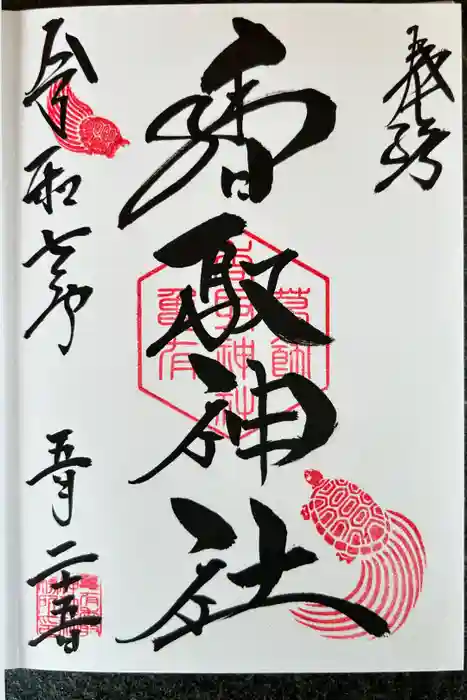 奉拝
葛飾
香取神社
亀有
香取神社
令和七年五月二十五日